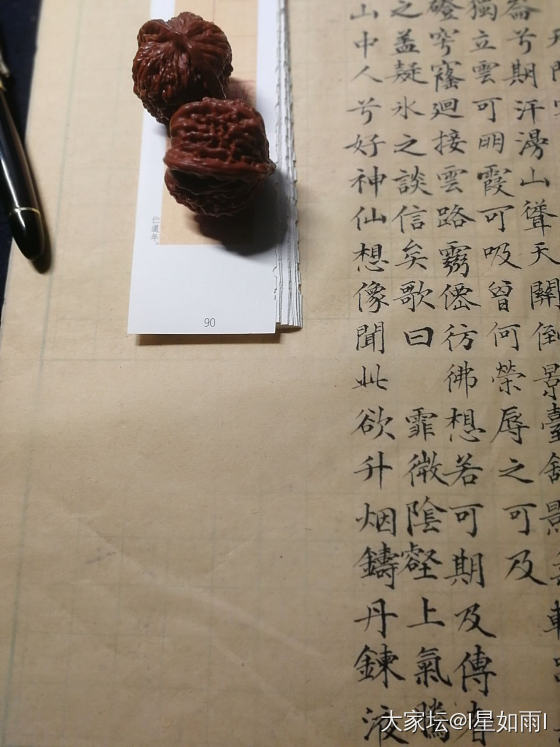 崙兮期汗漫山聳天關倒景臺舍影
獨立雲可朋霞可吸曾何榮辱之可及
磴穹窿迴接雲路靈僊彷彿想若可期及傳
之蓋疑冰之談信矣歌曰 霏微陰壑上氣騰
山中人兮好神仙想像聞此欲升烟鑄丹鍊液
90
大家坛@I星如雨I